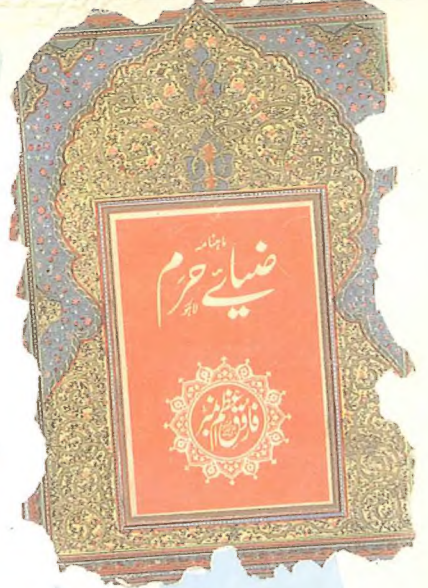 ماہنامہ
ضیائے حرم
لاہور
فاروق اعظم نمبر